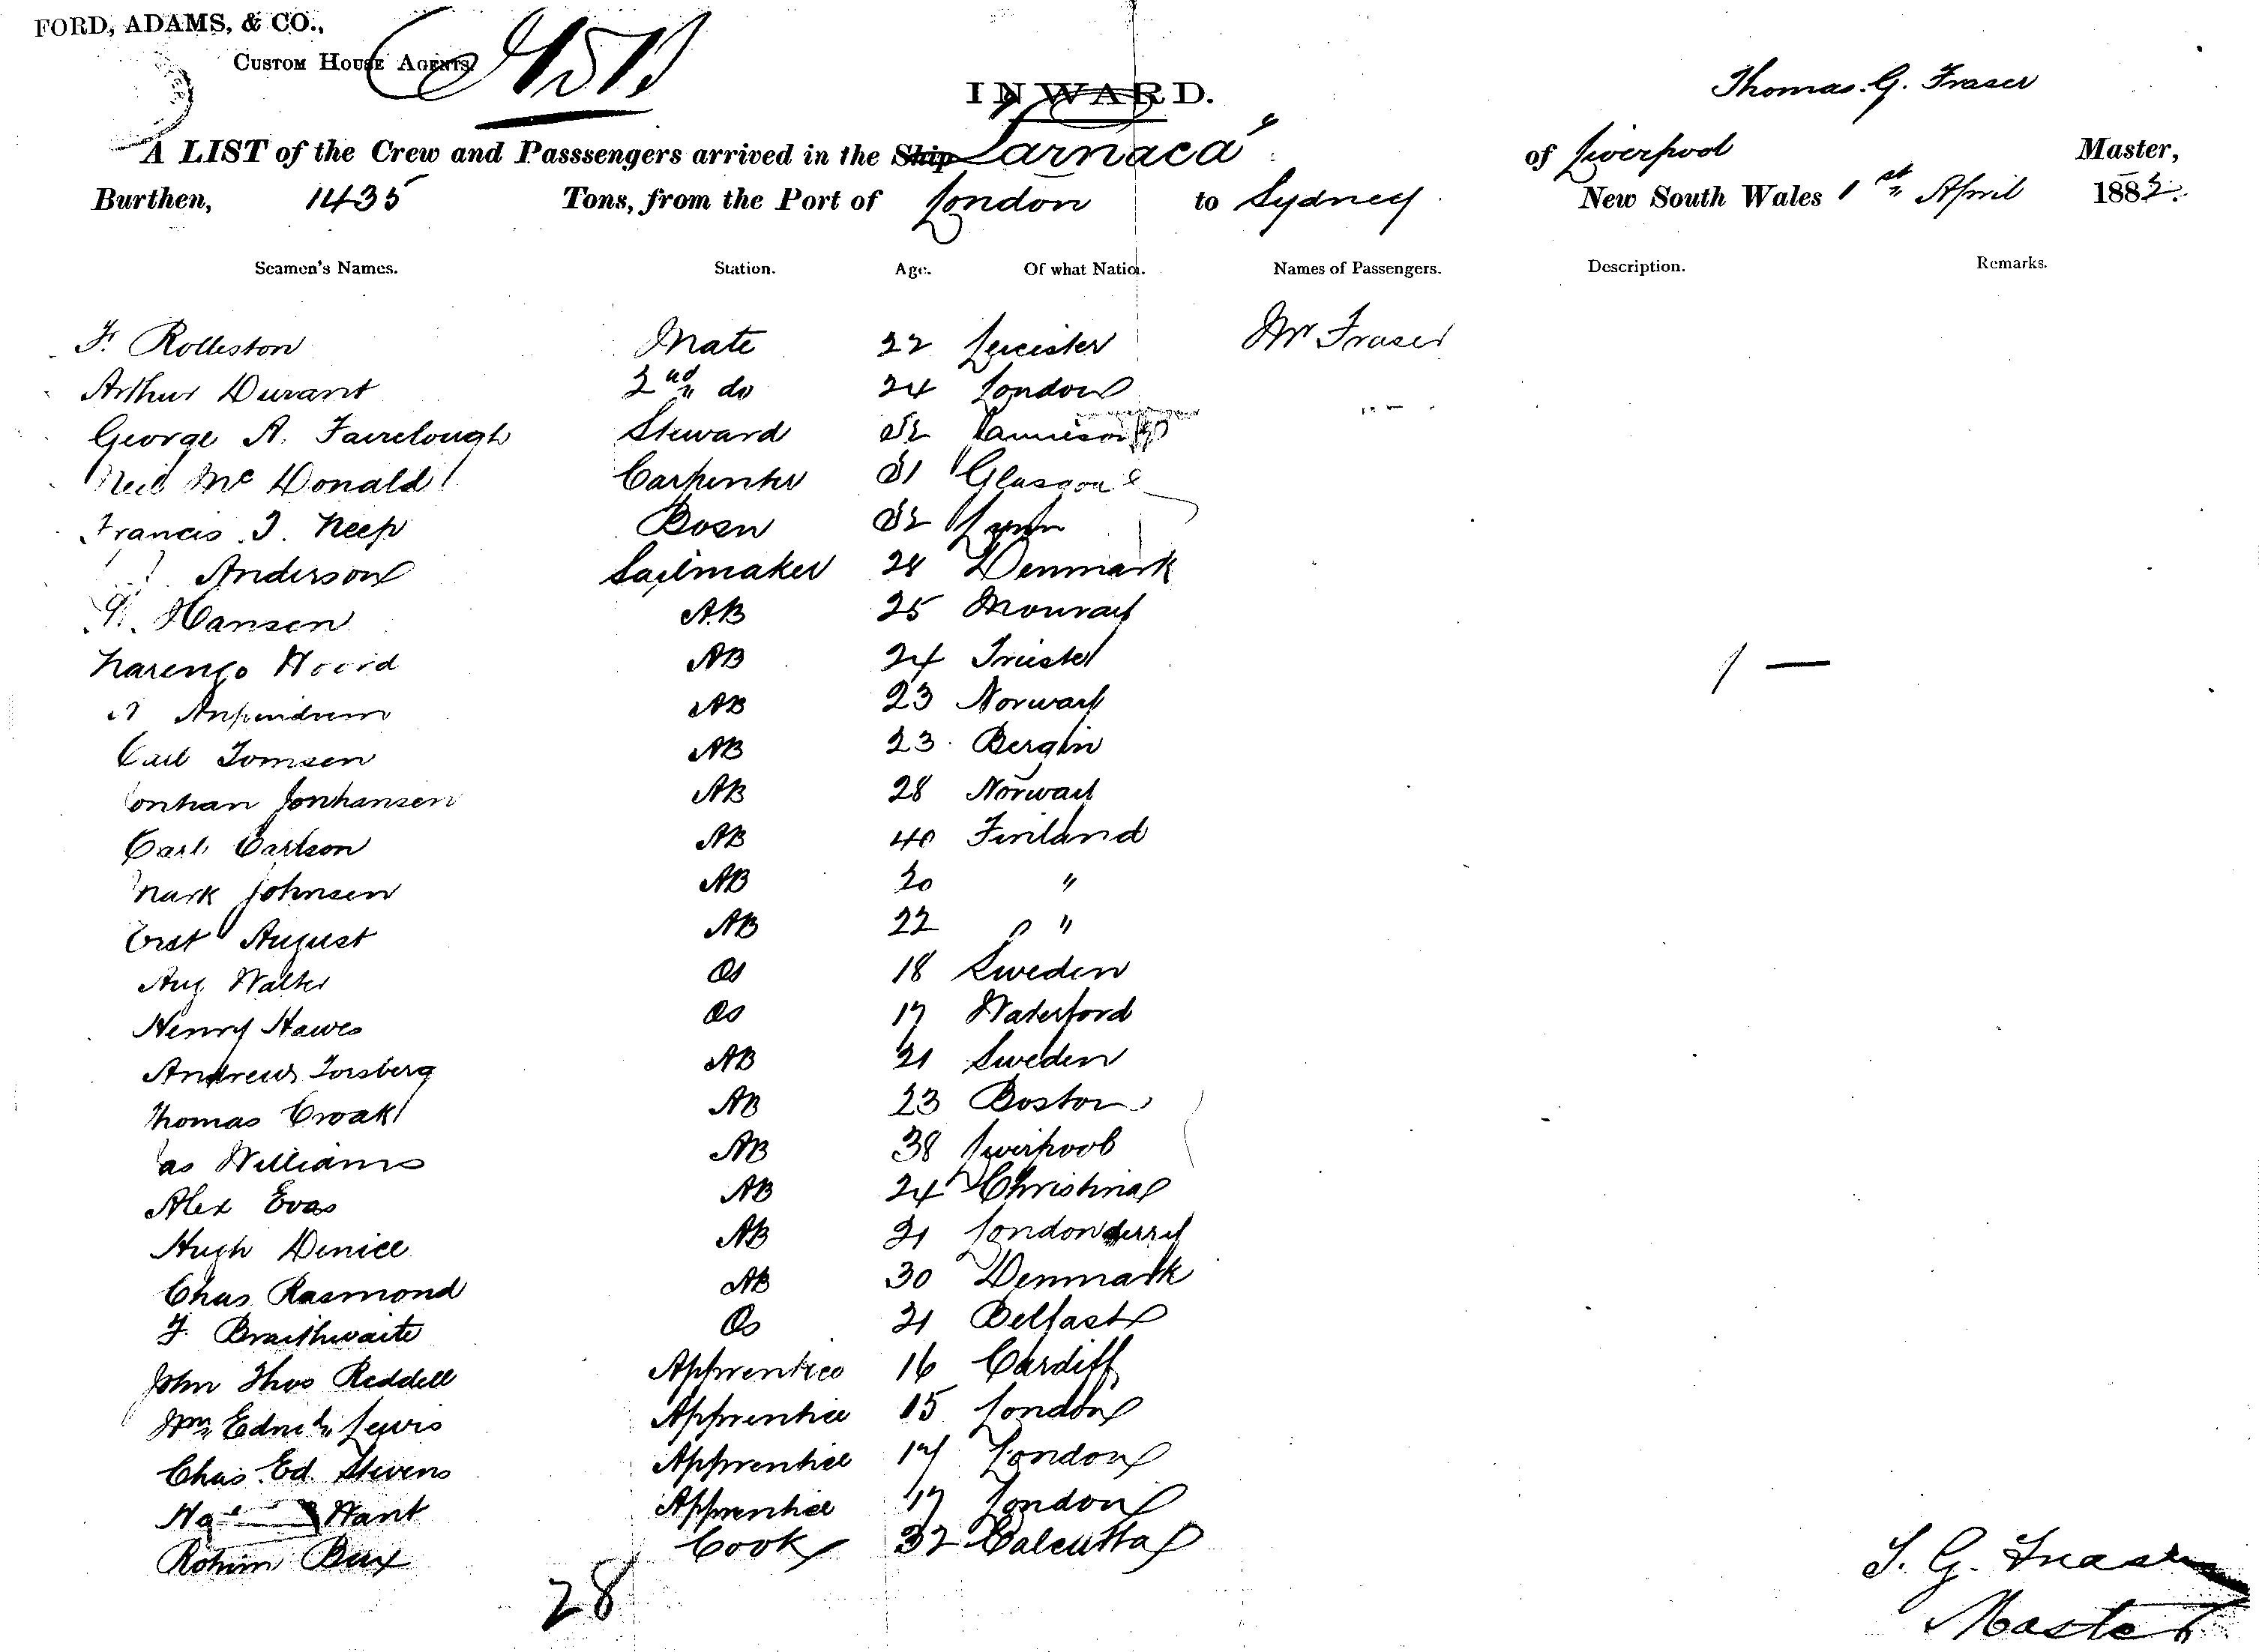 FORD, ADAMS, & CO.,
CUSTOM HOUSE AGENTS.
INWARD.
Thomas. G. Fraser
A LIST of the Crew and Passsengers arrived in the Ship "Larnaca" of Liverpool Master,
Burthen, 1435 Tons, from the Port of London to Sydney New South Wales 1st April 1882.
Seamen's Names. Station. Age. Of what Nation. Names of Passengers. Description. Remarks.
F. Rolleston Mate 22 Leicester Mr Fraser
Arthur Durant 2nd do 24 London
George A. Fairclough Steward 32
Neil Mc Donald Carpenter 31 Glasgow
Francis J. Neep Bosn 32 Lynn
Anderson Sailmaker 28 Denmark
Hansen A.B 25
AB 24 Trieste
AB 23 Norway
Carl Tomsen AB 23 Bergin
Jonhansen AB 28 Norway
Carl Carlson AB 40 Finland
Mark Johnsen AB 20 "
August AB 22 "
Aug Walter Os 18 Sweden
Henry Hawes Os 17 Waterford
Andrews Forsberg AB 21 Sweden
Thomas Croak AB 23 Boston
Jas Williams AB 38 Liverpool
Alex Evas AB 24 Christina
Hugh Denice AB 21 Londonderry
Chas Rasmond AB 30 Denmark
F. Braithwaite Os 21 Belfast
John Thos Reddell Apprentice 16 Cardiff
Wm Edm Lewis Apprentice 15 London
Chas. Ed. Stevens Apprentice 17 London
Want Apprentice 17 London
Rohim Bux Cook 32 Calcutta
28
T. G. Fraser
Master